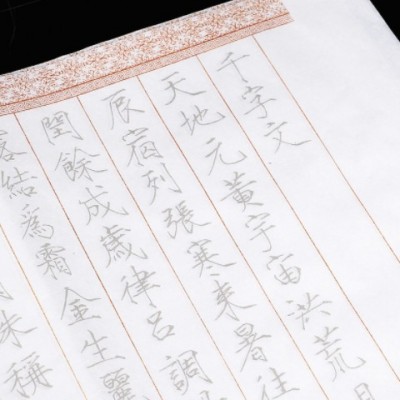 千字文
天地元黃宇宙洪荒日
辰宿列張寒來暑往
閏餘成歲律呂調
露結為霜金生麗
珠稱